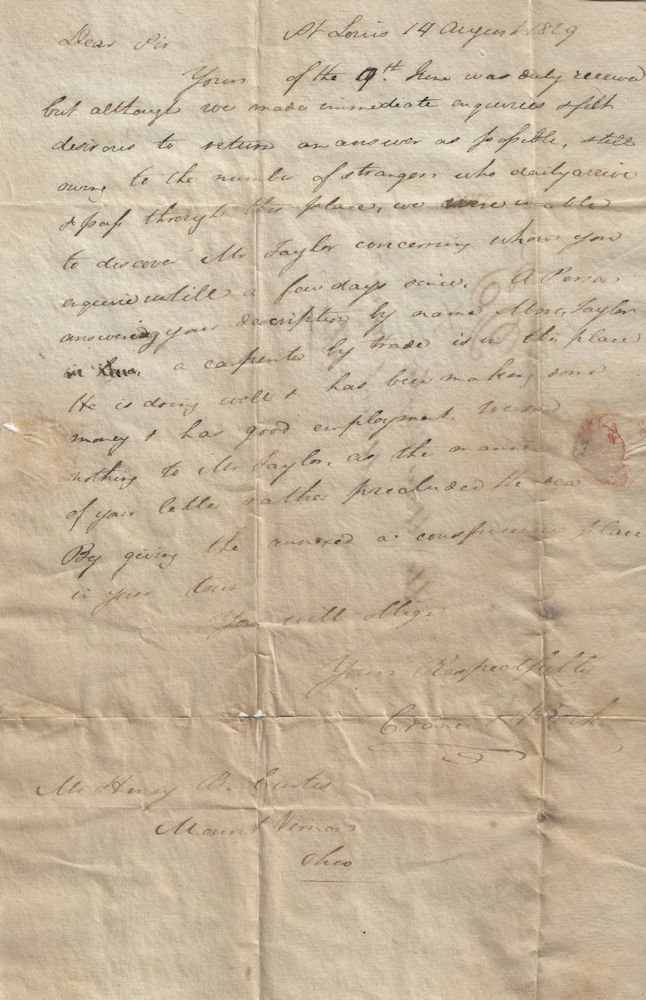 St Louis 14 August 1829
Dear Sir
Yours of the 9th June was duly received
but although we made immediate enquiries & felt
desirous to return an answer as possible, still
owing to the number of strangers who daily arrive
& pass through this place, we were unable
to discover Mr Taylor concerning whom you
enquire untill a few days since. A Person
answering your description by name Taylor
a carpenter by trade is in this place
He is doing well & has been making some
money & has good employment. We said
nothing to Mr Taylor, as the manner
of your letter rather precluded the idea
By giving the annexed a conspicuous place
in your town
You will oblige
Yours Respectfully
Mr Henry B. Curtis
Mount Vernon
Ohio